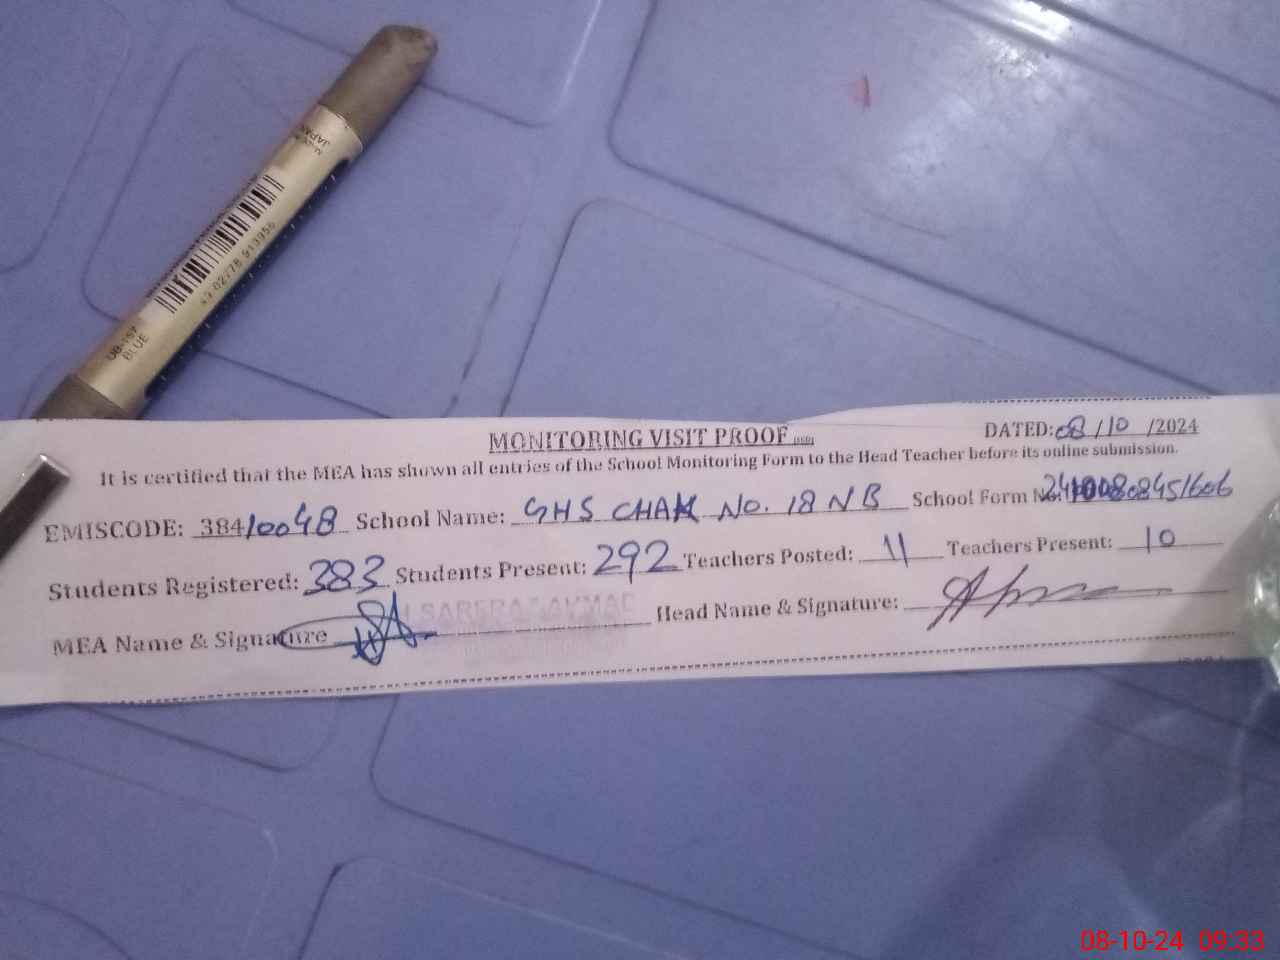 JAPAN
49 02778 913956
UB-157
BLUE
MONITORING VISIT PROOF
DATED: 08/10/2024
It is certified that the MEA has shown all entries of the School Monitoring Form to the Head Teacher before its online submission.
EMISCODE: 38410048 School Name: GHS CHAK No. 18 NB School Form No:
Students Registered: 383 Students Present: 292 Teachers Posted: 11 Teachers Present: 10
MEA Name & Signature Head Name & Signature:
08-10-24 09:33